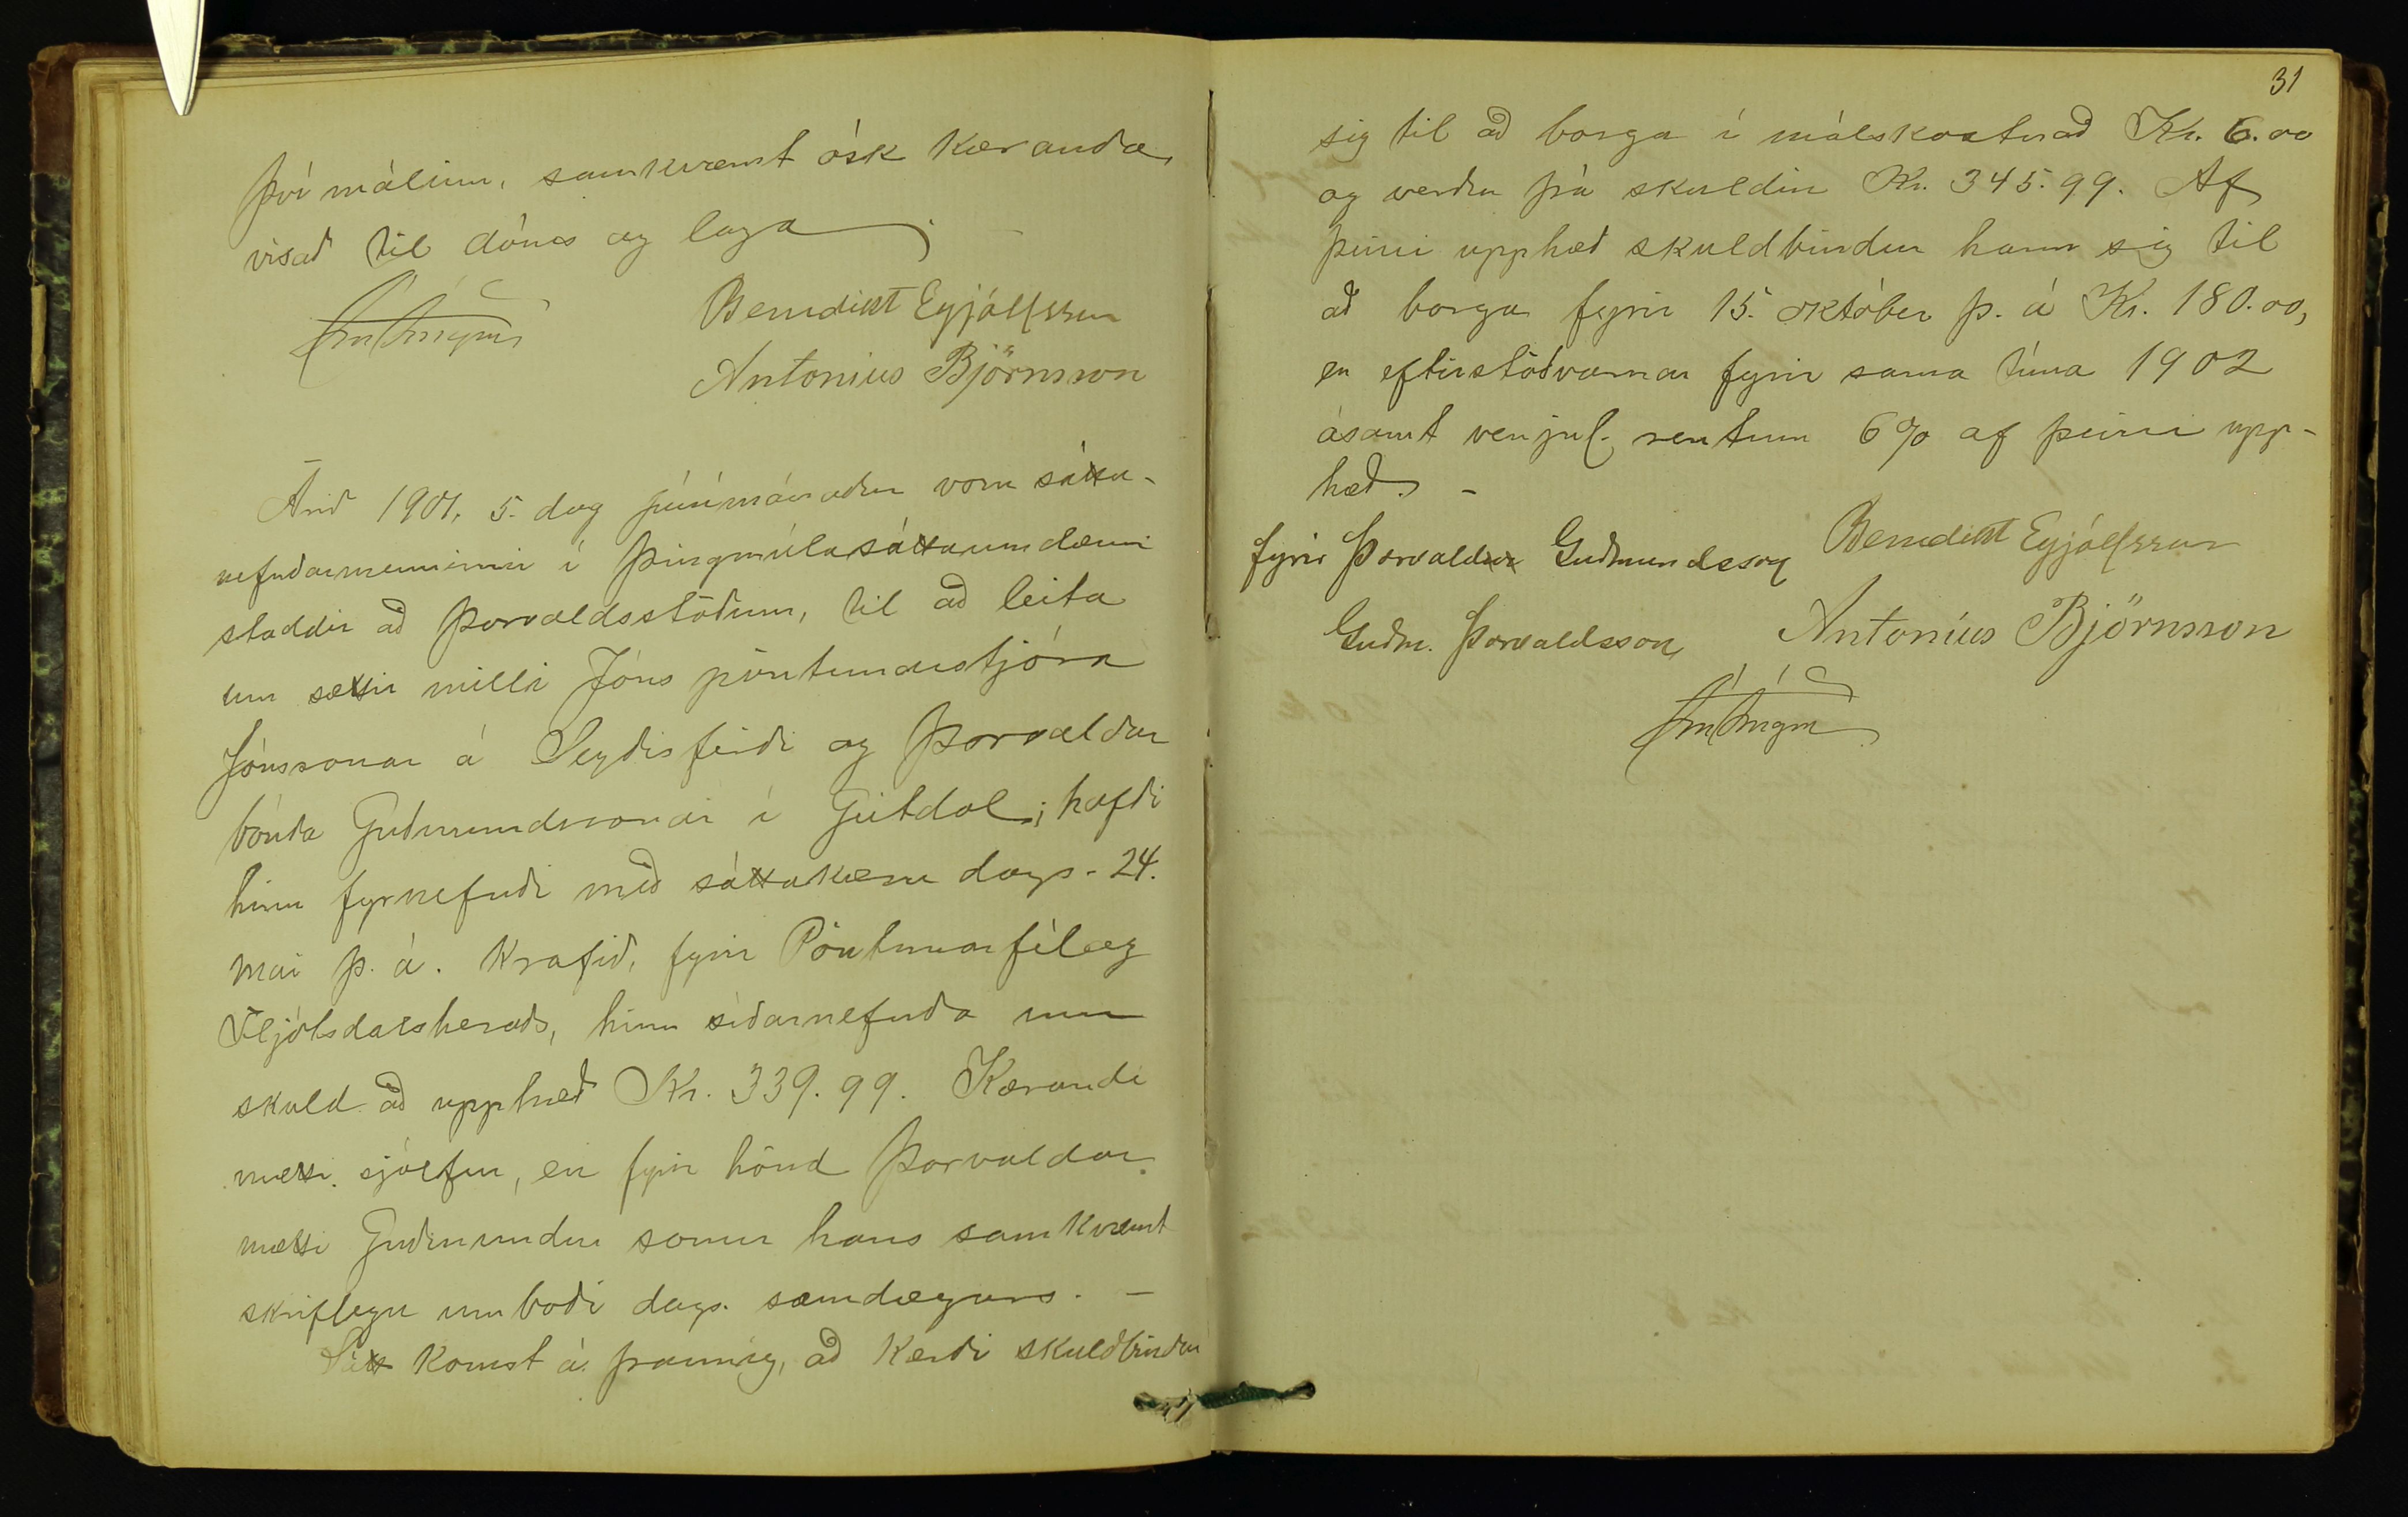 því málinu, samkvæmt ósk kæranda,
vísað til dóms og laga.
Benedikt Eyjólfsson
Antoníus Björnsson
Árið 1901, 5. dag júnímánaðar voru sátta-
nefndarmennirnir í Þingmúlasáttaumdæmi
staddir að Þorvaldsstöðum, til að leita
um sættir milli Jóns pöntunarstjóra
Jónssonar á Seyðisfirði og Þorvaldar
bónda Guðmundssonar í Geitdal; hafði
hinn fyrnefndi með sáttakæru dags. 24.
mai þ. á. krafið, fyrir Pöntunarfélag
Fljótsdalsheraðs, hinn síðarnefnda um
skuld að upphæð Kr. 339.99. Kærandi
mætti sjálfur, en fyrir hönd Þorvaldar
mætti Guðmundur sonur hans samkvæmt
skriflegu umboði dags. samdægurs. –
Sátt komst á þannig, að kærði skuldbindur
31
sig til að borga í málskostnað Kr. 6.00
og verður þá skuldin Kr. 345.99. Af
þeirri upphæð skuldbindur hann sig til
að borga fyrir 15. október þ. á Kr. 180.00,
en eftirstöðvarnar fyrir sama tíma 1902
ásamt venjul. rentum 6% af þeirri upp-
hæð. –
fyrir Þorvald Guðmundsson Benedikt Eyjólfsson
Guðm. Þorvaldsson Antoníus Björnsson